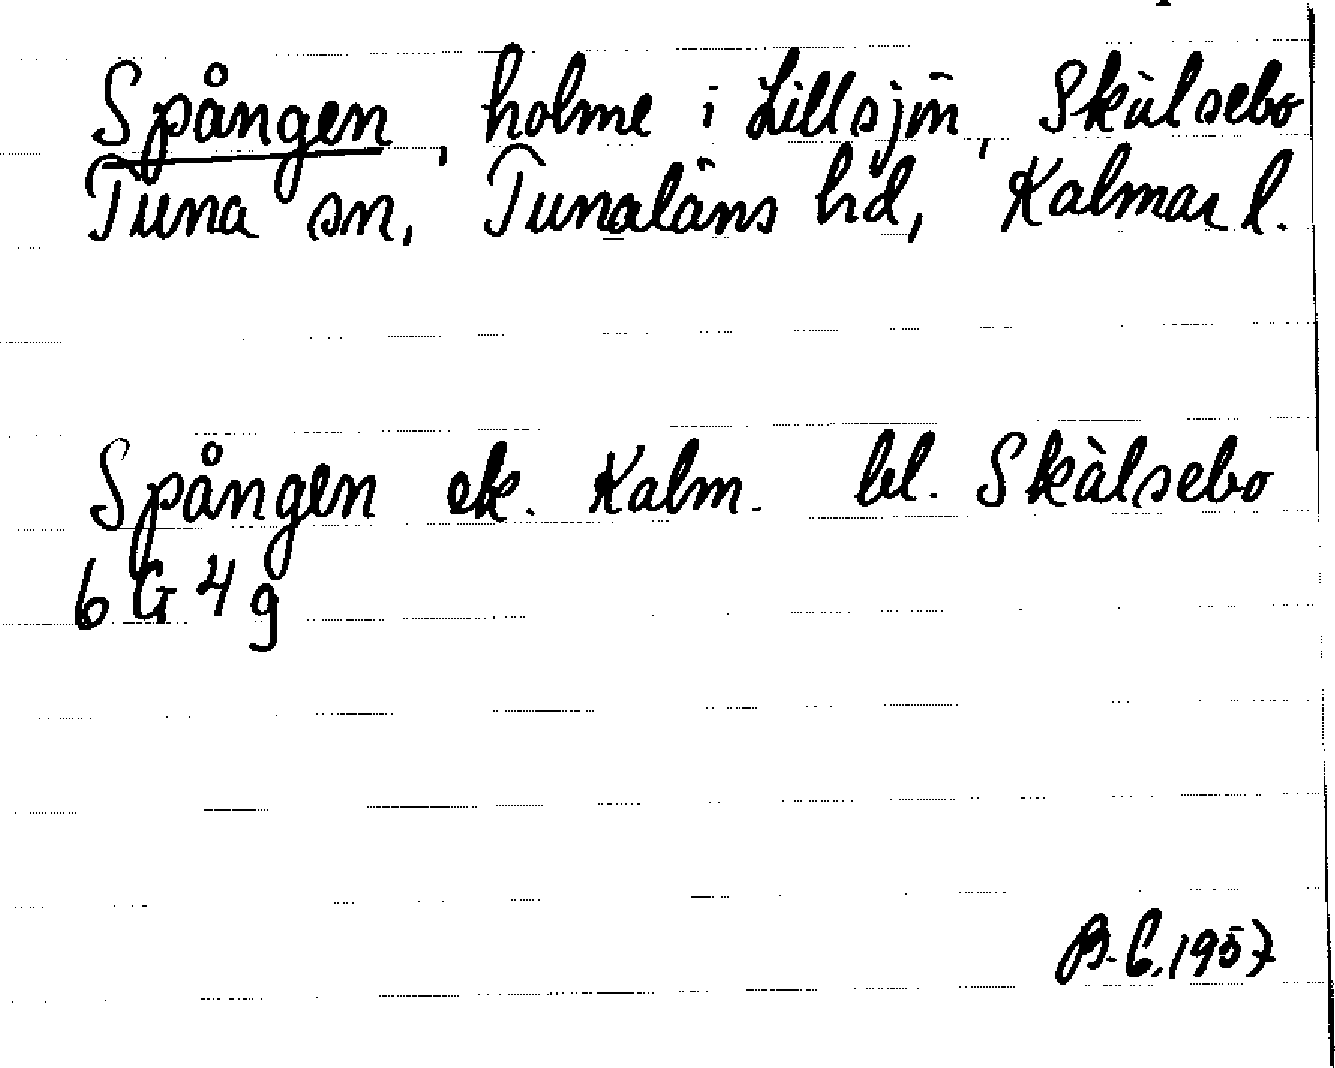 Spången, holme i Lillsjön, Skälsebo
Tuna sn, Tunaläns hd, Kalmar l.
Spången ek. Kalm. bl. Skälsebo
6 G 4 g
B.C. 1957